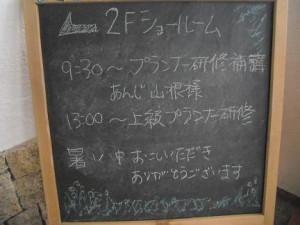 2Fショールーム
9:30〜プランナー研修補講
あんじ山根様
13:00〜上級プランナー研修
暑い中おこしいただき
ありがとうございます